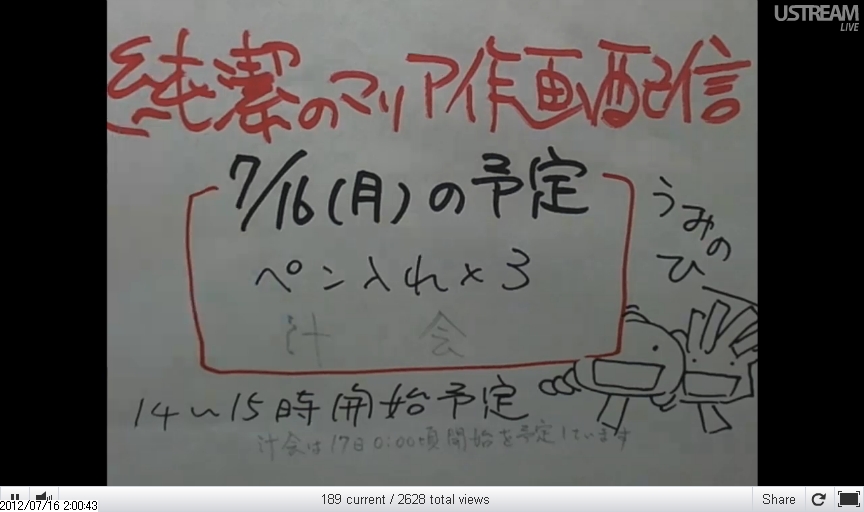 USTREAM
LIVE
純潔のマリア作画配信
7/16(月)の予定
ペン入れ×3
汁 会
うみの
ひ
14〜15時開始予定
汁会は17日0:00頃開始を予定しています
189 current / 2628 total views
Share
2012/07/16 2:00:43